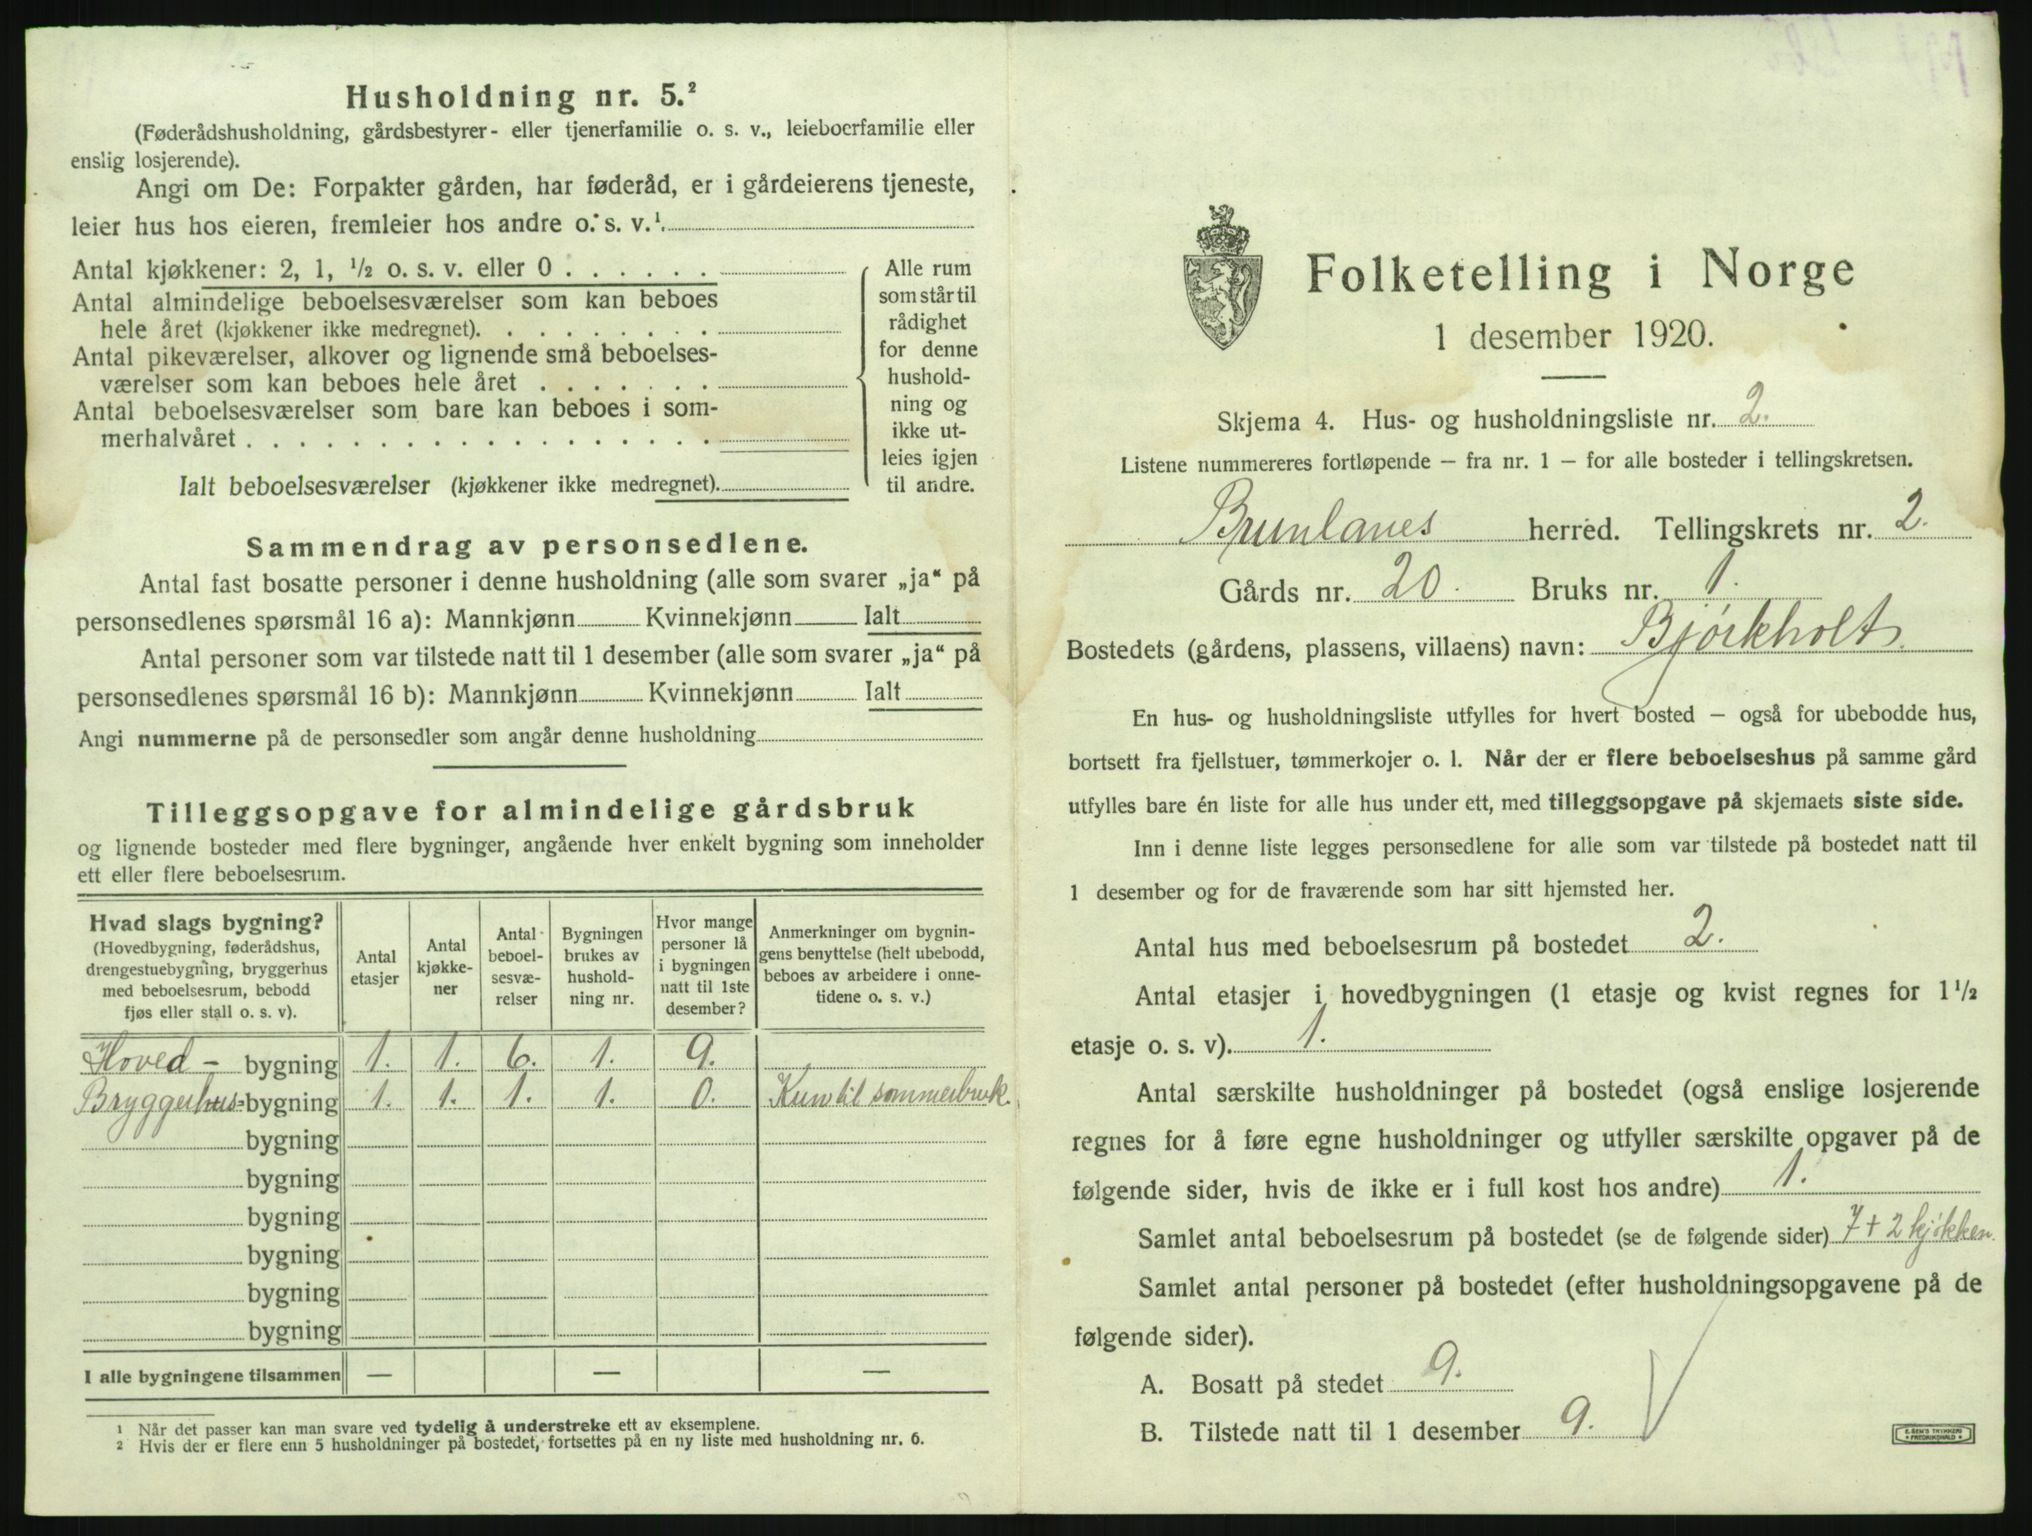 Husholdning nr. 5.²
(Føderådshusholdning, gårdsbestyrer- eller tjenerfamilie o. s. v., leieboerfamilie eller
enslig losjerende).
Angi om De: Forpakter gården, har føderåd, er i gårdeierens tjeneste,
leier hus hos eieren, fremleier hos andre o. s. v.¹
Antal kjøkkener: 2, 1, ½ o. s. v. eller 0 . . . . . .
Antal almindelige beboelsesværelser som kan beboes
hele året (kjøkkener ikke medregnet). . . . . . . . .
Antal pikeværelser, alkover og lignende små beboelses-
værelser som kan beboes hele året . . . . . . .
Antal beboelsesværelser som bare kan beboes i som-
merhalvåret . . . . . . . . . . . . . . . . . .
Alle rum
som står til
rådighet
for denne
hushold-
ning og
ikke ut-
leies igjen
til andre.
Ialt beboelsesværelser (kjøkkener ikke medregnet)
Sammendrag av personsedlene.
Antal fast bosatte personer i denne husholdning (alle som svarer „ja“ på
personsedlenes spørsmål 16 a): Mannkjønn Kvinnekjønn Ialt
Antal personer som var tilstede natt til 1 desember (alle som svarer „ja“ på
personsedlenes spørsmål 16 b): Mannkjønn Kvinnekjønn Ialt
Angi nummerne på de personsedler som angår denne husholdning
Tilleggsopgave for almindelige gårdsbruk
og lignende bosteder med flere bygninger, angående hver enkelt bygning som inneholder
ett eller flere beboelsesrum.
Hvad slags bygning?
(Hovedbygning, føderådshus,
drengestuebygning, bryggerhus
med beboelsesrum, bebodd
fjøs eller stall o. s. v).
Antal
etasjer
Antal
kjøkke-
ner
Antal
beboel-
sesvæ-
relser
Bygningen
brukes av
hushold-
ning nr.
Hvor mange
personer lå
i bygningen
natt til 1ste
desember?
Anmerkninger om bygnin-
gens benyttelse (helt ubebodd,
beboes av arbeidere i onne-
tidene o. s. v.)
Hoved- bygning 1. 1. 6. 1. 9.
Bryggerhus- bygning 1. 1. 1. 1. 0. Kun til sommerbruk.
bygning
bygning
bygning
bygning
bygning
bygning
I alle bygningene tilsammen — — —
¹ Når det passer kan man svare ved tydelig å understreke ett av eksemplene.
² Hvis der er flere enn 5 husholdninger på bostedet, fortsettes på en ny liste med husholdning nr. 6.
Folketelling i Norge
1 desember 1920.
Skjema 4. Hus- og husholdningsliste nr. 2.
Listene nummereres fortløpende — fra nr. 1 — for alle bosteder i tellingskretsen.
Brunlanes herred. Tellingskrets nr. 2.
Gårds nr. 20. Bruks nr. 1.
Bostedets (gårdens, plassens, villaens) navn: Bjørkholt.
En hus- og husholdningsliste utfylles for hvert bosted — også for ubebodde hus,
bortsett fra fjellstuer, tømmerkojer o. l. Når der er flere beboelseshus på samme gård
utfylles bare én liste for alle hus under ett, med tilleggsopgave på skjemaets siste side.
Inn i denne liste legges personsedlene for alle som var tilstede på bostedet natt til
1 desember og for de fraværende som har sitt hjemsted her.
Antal hus med beboelsesrum på bostedet 2.
Antal etasjer i hovedbygningen (1 etasje og kvist regnes for 1½
etasje o. s. v). 1.
Antal særskilte husholdninger på bostedet (også enslige losjerende
regnes for å føre egne husholdninger og utfyller særskilte opgaver på de
følgende sider, hvis de ikke er i full kost hos andre) 1.
Samlet antal beboelsesrum på bostedet (se de følgende sider) 7 + 2 kjøkken.
Samlet antal personer på bostedet (efter husholdningsopgavene på de
følgende sider).
A. Bosatt på stedet 9.
B. Tilstede natt til 1 desember 9.
E. SEM'S TRYKKERI
FREDRIKSHALD